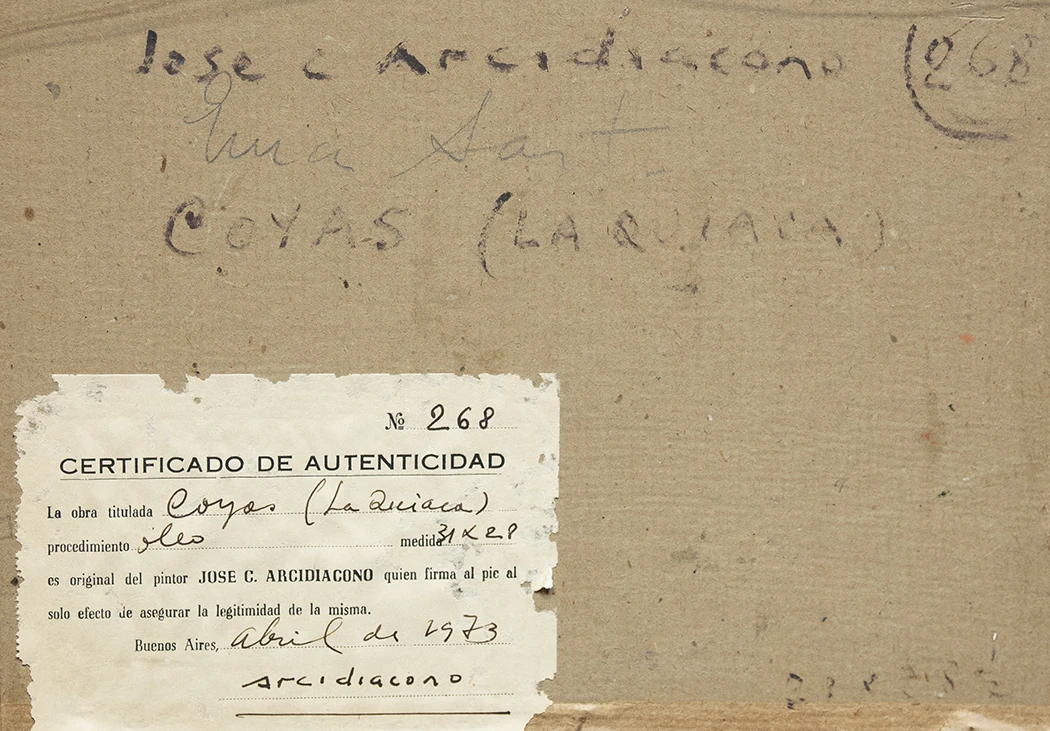 Jose C Arcidiacono (268
COYAS (LA QUIACA)
№ 268
CERTIFICADO DE AUTENTICIDAD
La obra titulada Coyas (La Quiaca)
procedimiento óleo medida 31 x 28
es original del pintor JOSE C. ARCIDIACONO quien firma al pie al
solo efecto de asegurar la legitimidad de la misma.
Buenos Aires, abril de 1973
arcidiacono